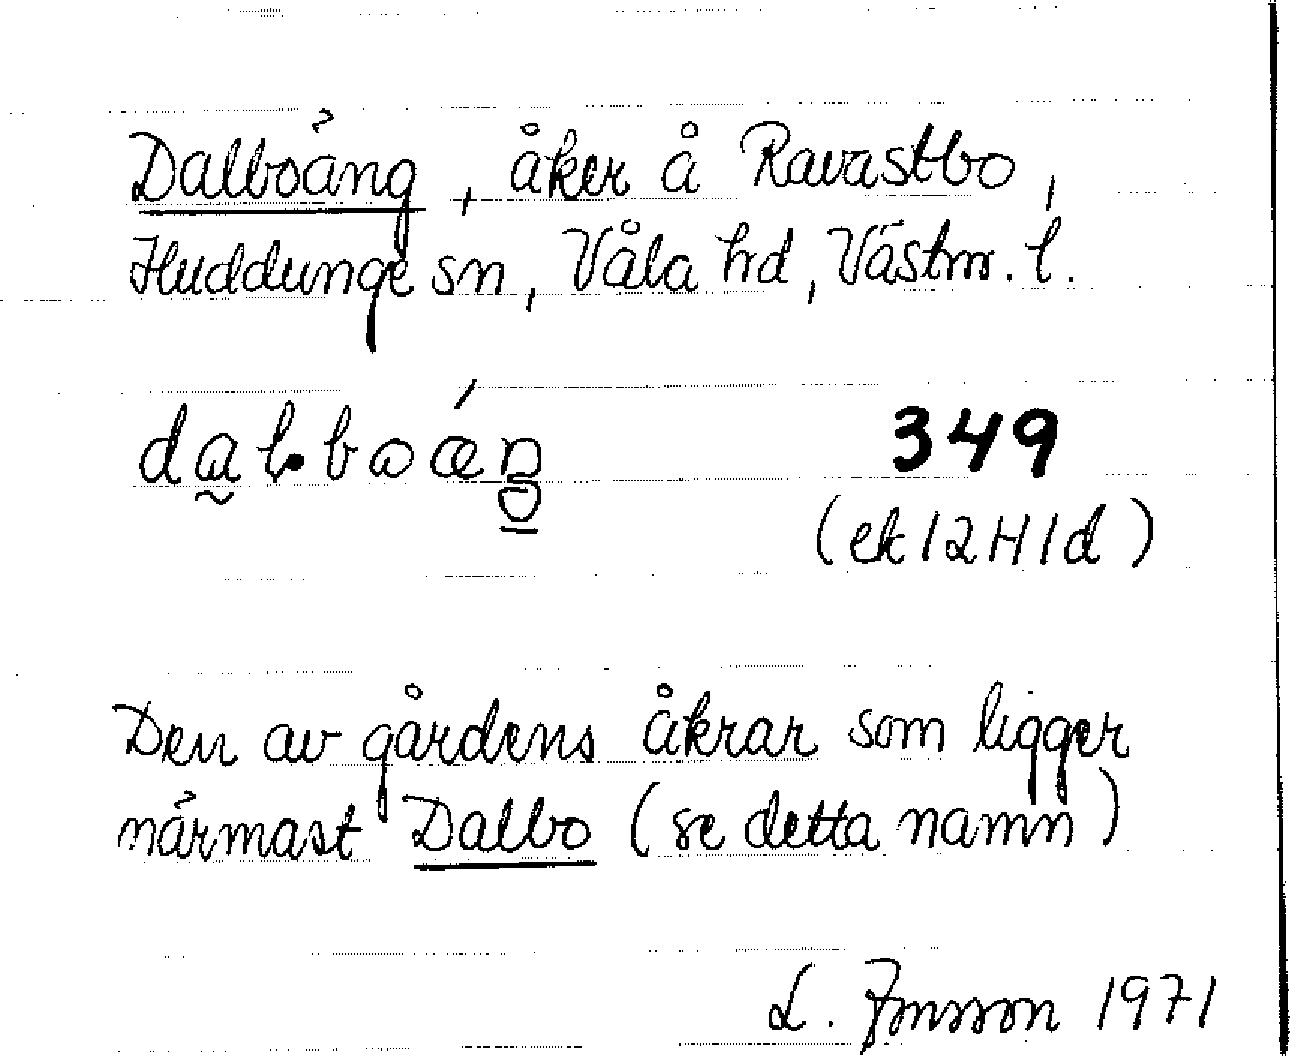 Dalboäng, åker å Ravastbo,
Huddunge sn, Våla hd, Västm. l.
349
(ek 12H1d)
Den av gårdens åkrar som ligger
närmast Dalbo (se detta namn)
L. Jonsson 1971